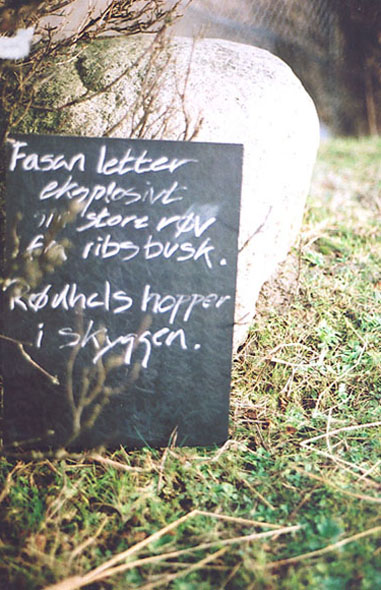 Fasan letter
eksplosivt
store røv
fra ribsbusk.
Rødhals hopper
i skyggen.